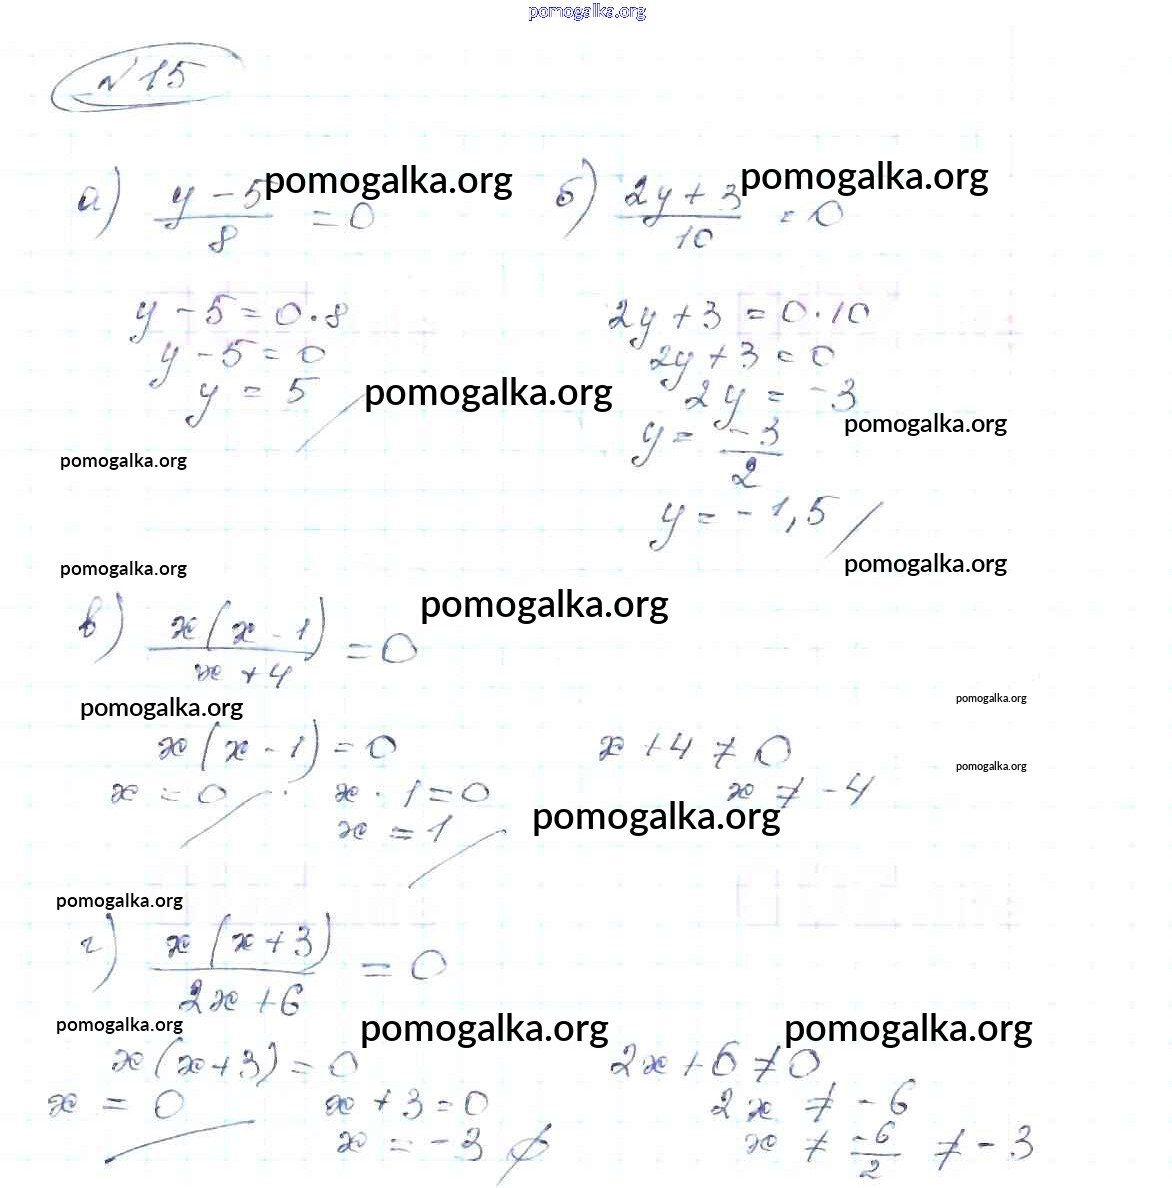 pomogalka.org
№15
а) y - 5 / 8 = 0 pomogalka.org б) 2y + 3 / 10 = 0 pomogalka.org
y - 5 = 0·8 2y + 3 = 0·10
y - 5 = 0 2y + 3 = 0
y = 5 pomogalka.org 2y = -3
pomogalka.org y = -3 / 2 pomogalka.org
y = -1,5
pomogalka.org pomogalka.org
в) x(x - 1) / x + 4 = 0 pomogalka.org
pomogalka.org pomogalka.org
x(x - 1) = 0 x + 4 ≠ 0
pomogalka.org
x = 0 x - 1 = 0 x ≠ -4
x = 1 pomogalka.org
pomogalka.org
г) x(x + 3) / 2x + 6 = 0
pomogalka.org pomogalka.org pomogalka.org
x(x + 3) = 0 2x + 6 ≠ 0
x = 0 x + 3 = 0 2x ≠ -6
x = -3 ∅ x ≠ -6 / 2 ≠ -3